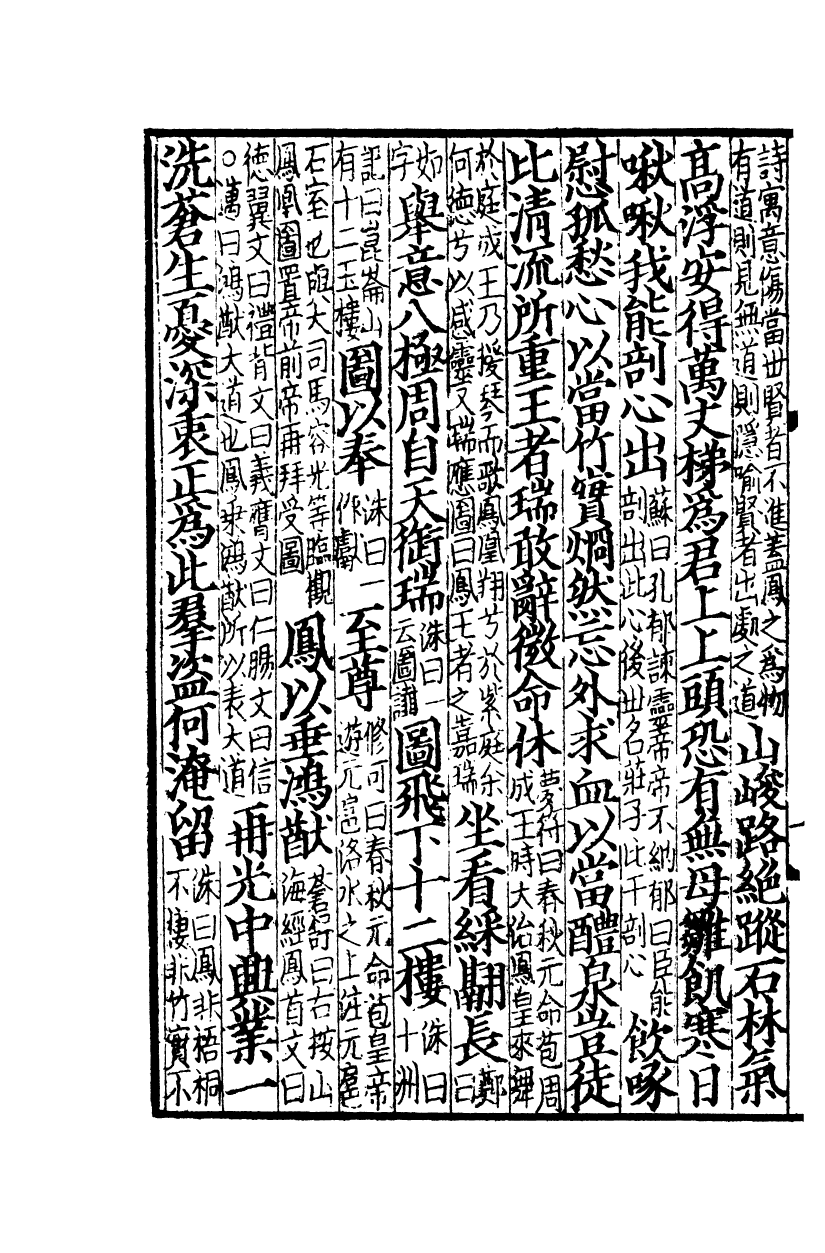 詩寓意傷當世賢者不進蓋鳳之為物
有道則見無道則隱喻賢者出處之道
山峻路絕蹤石林氣
高浮安得萬丈梯為君上上頭恐有無母雛飢寒日
啾啾我能剖心出
蘇曰孔郁諫靈帝帝不納郁曰臣能
剖出此心後世名莊子比干剖心
飲啄
慰孤愁心以當竹實烱然忘外求血以當醴泉豈徒
比清流所重王者瑞敢辭微命休
夢符曰春秋元命苞周
成王時大治鳳皇來舞
於庭成王乃援琴而歌鳳凰翔兮於紫庭余
何德兮以感靈又瑞應圖曰鳳王者之嘉瑞
坐看綵翮長
鄭
曰
如
字
舉意八極周自天銜瑞
洙曰一
云圖讖
圖飛下十二樓
洙曰
十洲
記曰崑崙山
有十二玉樓
圖以奉
洙曰一
作獻
至尊
修可曰春秋元命苞皇帝
遊元扈洛水之上注元扈
石室也與大司馬容光等臨觀
鳳凰圖置帝前帝再拜受圖
鳳以垂鴻猷
蒼舒曰右按山
海經鳳首文曰
德翼文曰禮背文曰義膺文曰仁腸文曰信
○萬曰鴻猷大道也鳳乘鴻猷所以表大道
再光中興業一
洗蒼生憂深衷正為此羣盜何淹留
洙曰鳳非梧桐
不棲非竹實不